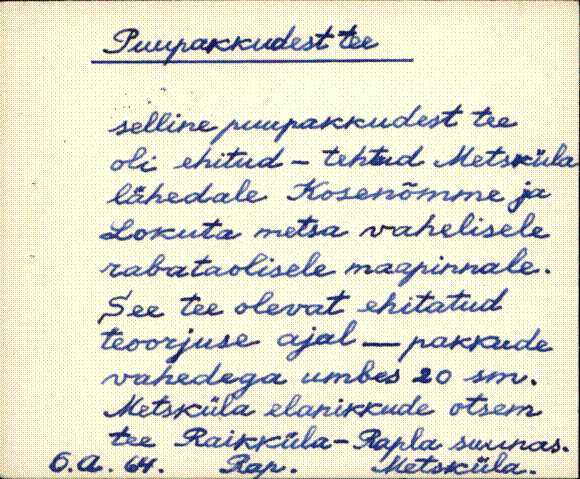 Puupakkudest tee
selline puupakkudest tee
oli ehitud - tehtud Metsküla
lähedale Kosenõmme ja
Lokuta metsa vahelisele
rabataolisele maapinnale.
See tee olevat ehitatud
teoorjuse ajal — pakkude
vahedega umbes 20 sm.
Metsküla elanikkude otsem
tee Raikküla-Rapla suunas.
O.A. 64. Rap. Metsküla.